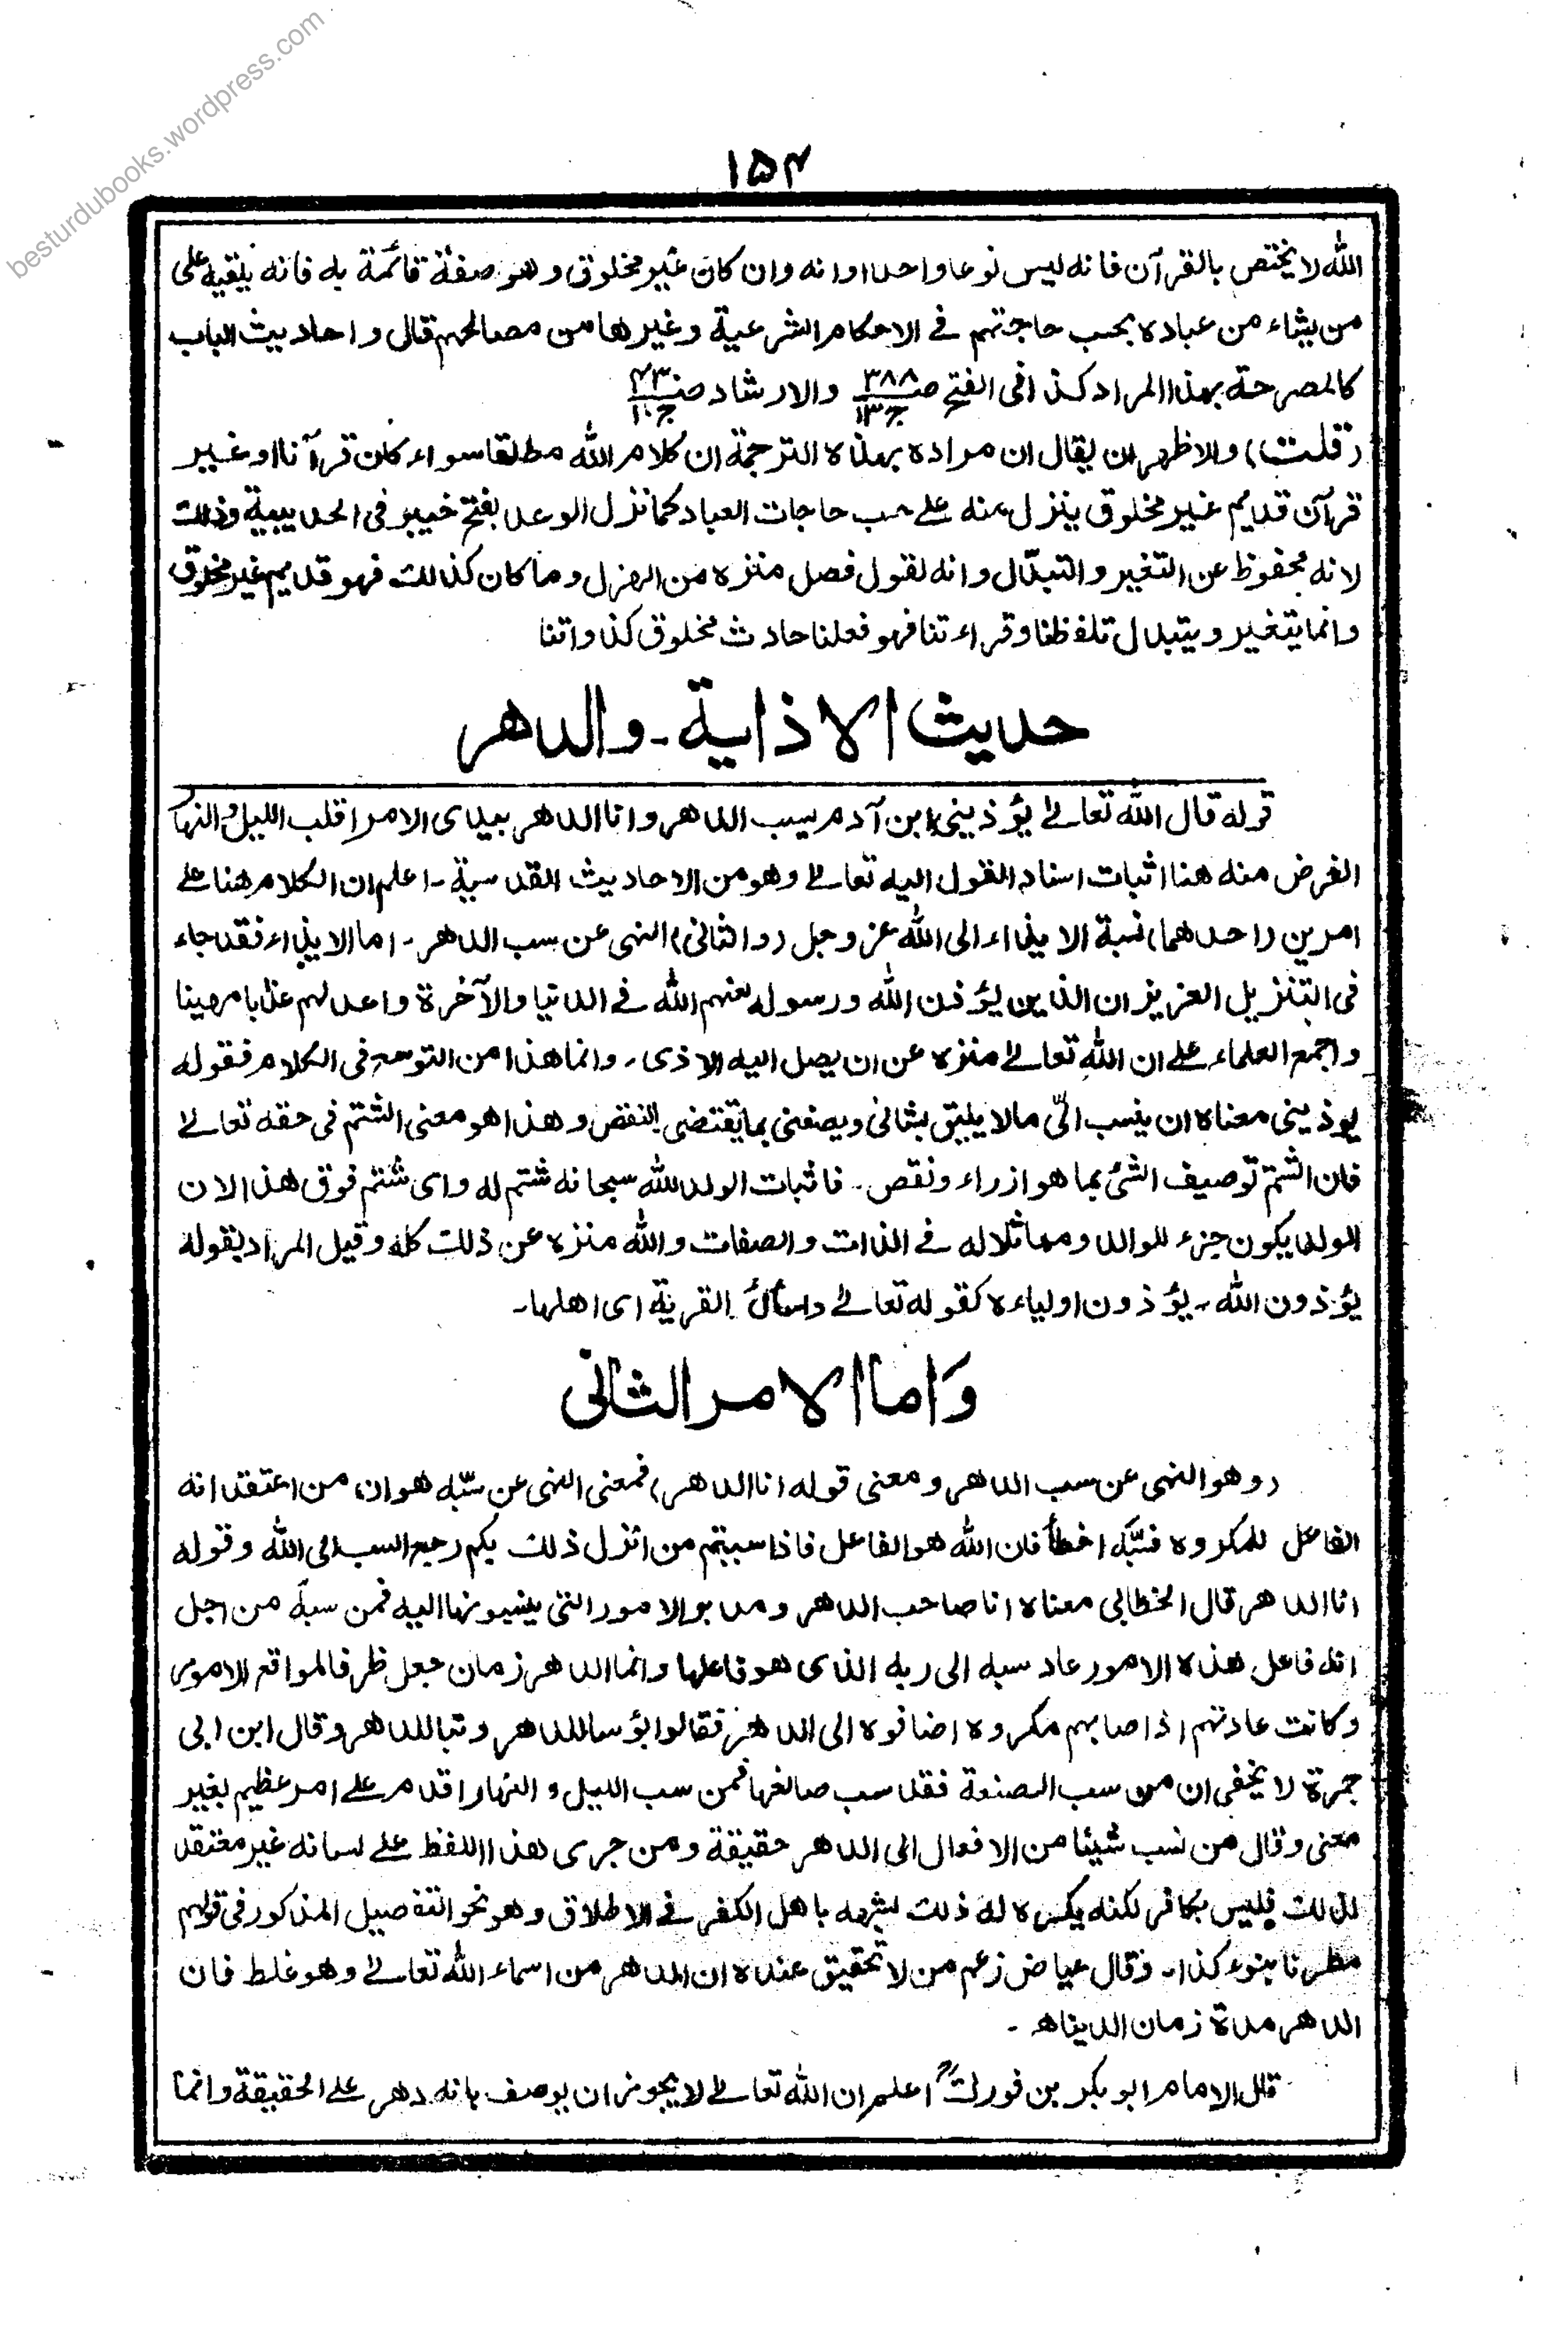 besturdubooks.wordpress.com
۱۵۴
الله لا يختص بالقرآن فانه ليس نوعا واحدا وانه وان كان غير مخلوق وهو صفة قائمة به فانه يلقيه على
من يشاء من عباده بحسب حاجتهم فى الاحكام الشرعية وغيرها من مصالحهم قال واحاديث الباب
كالمصرحة بهذا المراد كذا فى الفتح صـ ۳۸۸ ج ۱۳ والارشاد صـ ۴۳ ج ۱۰
(قلت) والاظهر ان يقال ان مراده بهذه الترجمة ان كلام الله مطلقا سواء كان قرآنا او غير
قرآن قديم غير مخلوق ينزل منه على حسب حاجات العباد كما نزل الوعد بفتح خيبر فى الحديبية وذلك
لانه محفوظ عن التغير والتبدّل وانه لقول فصل منزه من الهزل وما كان كذالك فهو قديم غير مخلوق
وانما يتغير ويتبدل تلفظنا وقراءتنا فهو فعلنا حادث مخلوق كذواتنا
حديث الاذاية ـ والدهر
قوله قال الله تعالى يؤذينى ابن آدم يسب الدهر وانا الدهر بيدى الامر اقلب الليل والنهار
الغرض منه هنا اثبات اسناد القول اليه تعالى وهو من الاحاديث القدسية ـ اعلم ان الكلام هنا على
امرين (احدهما) نسبة الايذاء الى الله عز وجل (والثانى) النهى عن سب الدهر ـ اما الايذاء فقد جاء
فى التنزيل العزيز ان الذين يؤذون الله ورسوله لعنهم الله فى الدنيا والآخرة واعد لهم عذابا مهينا
واجمع العلماء على ان الله تعالى منزه عن ان يصل اليه الاذى ـ وانما هذا من التوسع فى الكلام فقوله
يوذينى معناه ان ينسب الىّ مالا يليق بشانى ويصفنى بما يقتضى النقص وهذا هو معنى الشتم فى حقه تعالى
فان الشتم توصيف الشئ بما هو ازراء ونقص ـ فاثبات الولد لله سبحانه شتم له واى شتم فوق هذا لان
الولد يكون جزء للوالد ومماثلا له فى الذات والصفات والله منزه عن ذلك كله وقيل المراد بقوله
يؤذون الله ـ يؤذون اولياءه كقوله تعالى واسأل القرية اى اهلها ـ
وَاما الامر الثانى
(وهو النهى عن سب الدهر ومعنى قوله انا الدهر) فمعنى النهى عن سبّه هو ان من اعتقد انه
الفاعل للمكروه فسَبَّه اخطأ فان الله هو الفاعل فاذا سببتم من انزل ذلك بكم رجع السب الى الله وقوله
انا الدهر قال الخطابى معناه انا صاحب الدهر ومدبر الامور التى ينسبونها اليه فمن سبه من اجل
انه فاعل هذه الامور عاد سبه الى ربه الذى هو فاعلها وانما الدهر زمان جعل ظرفا لمواقع الامور
وكانت عادتهم اذا اصابهم مكروه اضافوه الى الدهر فقالوا بؤسا للدهر وتبا للدهر وقال ابن ابى
جمرة لا يخفى ان من سب الصنعة فقد سب صانعها فمن سب الليل والنهار اقدم على امر عظيم بغير
معنى وقال من نسب شيئا من الافعال الى الدهر حقيقة ومن جرى هذا اللفظ على لسانه غير معتقد
لذلك فليس بكافر لكنه يكره له ذلك لشبهه باهل الكفر فى الاطلاق وهو نحو التفصيل المذكور فى قولهم
مطرنا بنوء كذا ـ وقال عياض زعم من لا تحقيق عنده ان الدهر من اسماء الله تعالى وهو غلط فان
الدهر مدة زمان الدينا اهـ ـ
قال الامام ابو بكر بن فورك اعلم ان الله تعالى لا يجوز ان يوصف بانه دهر على الحقيقة وانما